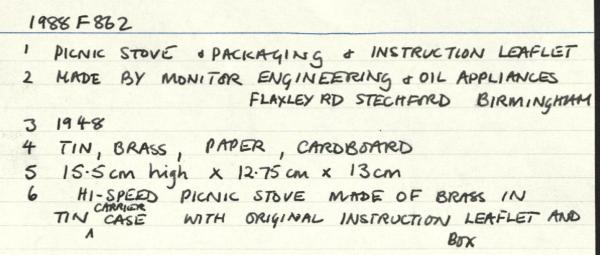 1988 F 862
1 PICNIC STOVE & PACKAGING & INSTRUCTION LEAFLET
2 MADE BY MONITOR ENGINEERING & OIL APPLIANCES
FLAXLEY RD STECHFORD BIRMINGHAM
3 1948
4 TIN, BRASS, PAPER, CARDBOARD
5 15.5cm high x 12.75cm x 13cm
6 HI-SPEED PICNIC STOVE MADE OF BRASS IN
CARRIER
TIN ^ CASE WITH ORIGINAL INSTRUCTION LEAFLET AND
BOX